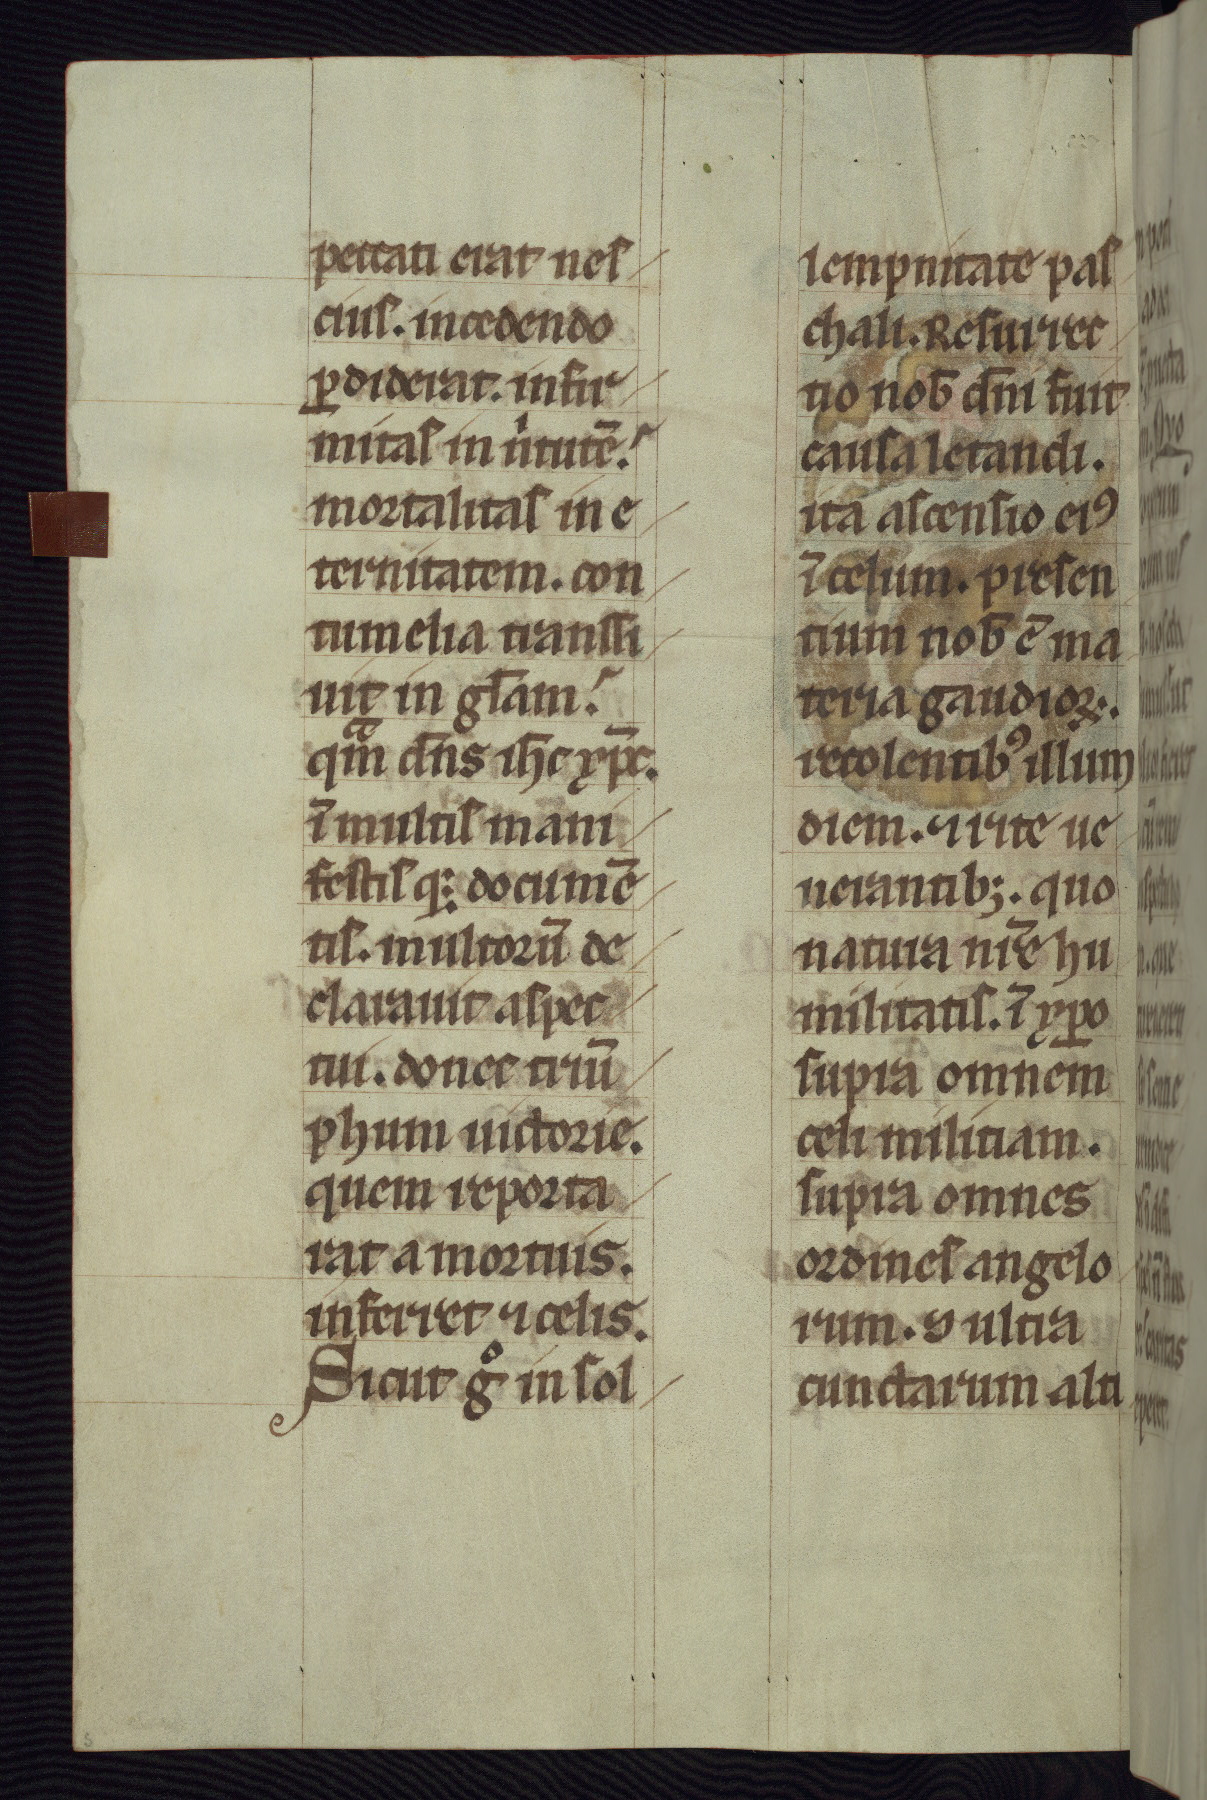 peccati erat neſ
ciuſ. incedendo
ꝑdiderat. infir
mitaſ in uͥtutē.
mortalitaſ in e
ternitatem. con
tumelia tranſſi
uit in gl̄am.
qm̄ dn̄s ih̄c xp̄c.
ī multiſ mani
feſtiſ q: documē
tiſ. multorū de
clarauit aſpec
tui. donec triū
phum uictorie.
quem reporta
rat a mortuis.
inferret ⁊ celis.
Sicut gͦ in ſol
lempnitate paſ
chali. Reſurrec
tio nob̄ dn̄i fuit
cauſa letandi.
ita aſcenſio eiꝰ
ī celum. preſen
tium nob̄ ē ma
teria gaudioꝝ.
recolentibꝰ illum
diem. ⁊ rite ue
nerantibꝫ. quo
natura nr̄e hu
militatiſ. ī xp̄o
ſupra omnem
celi militiam.
ſupra omnes
ordineſ angelo
rum. ⁊ ultra
cunctarum alti